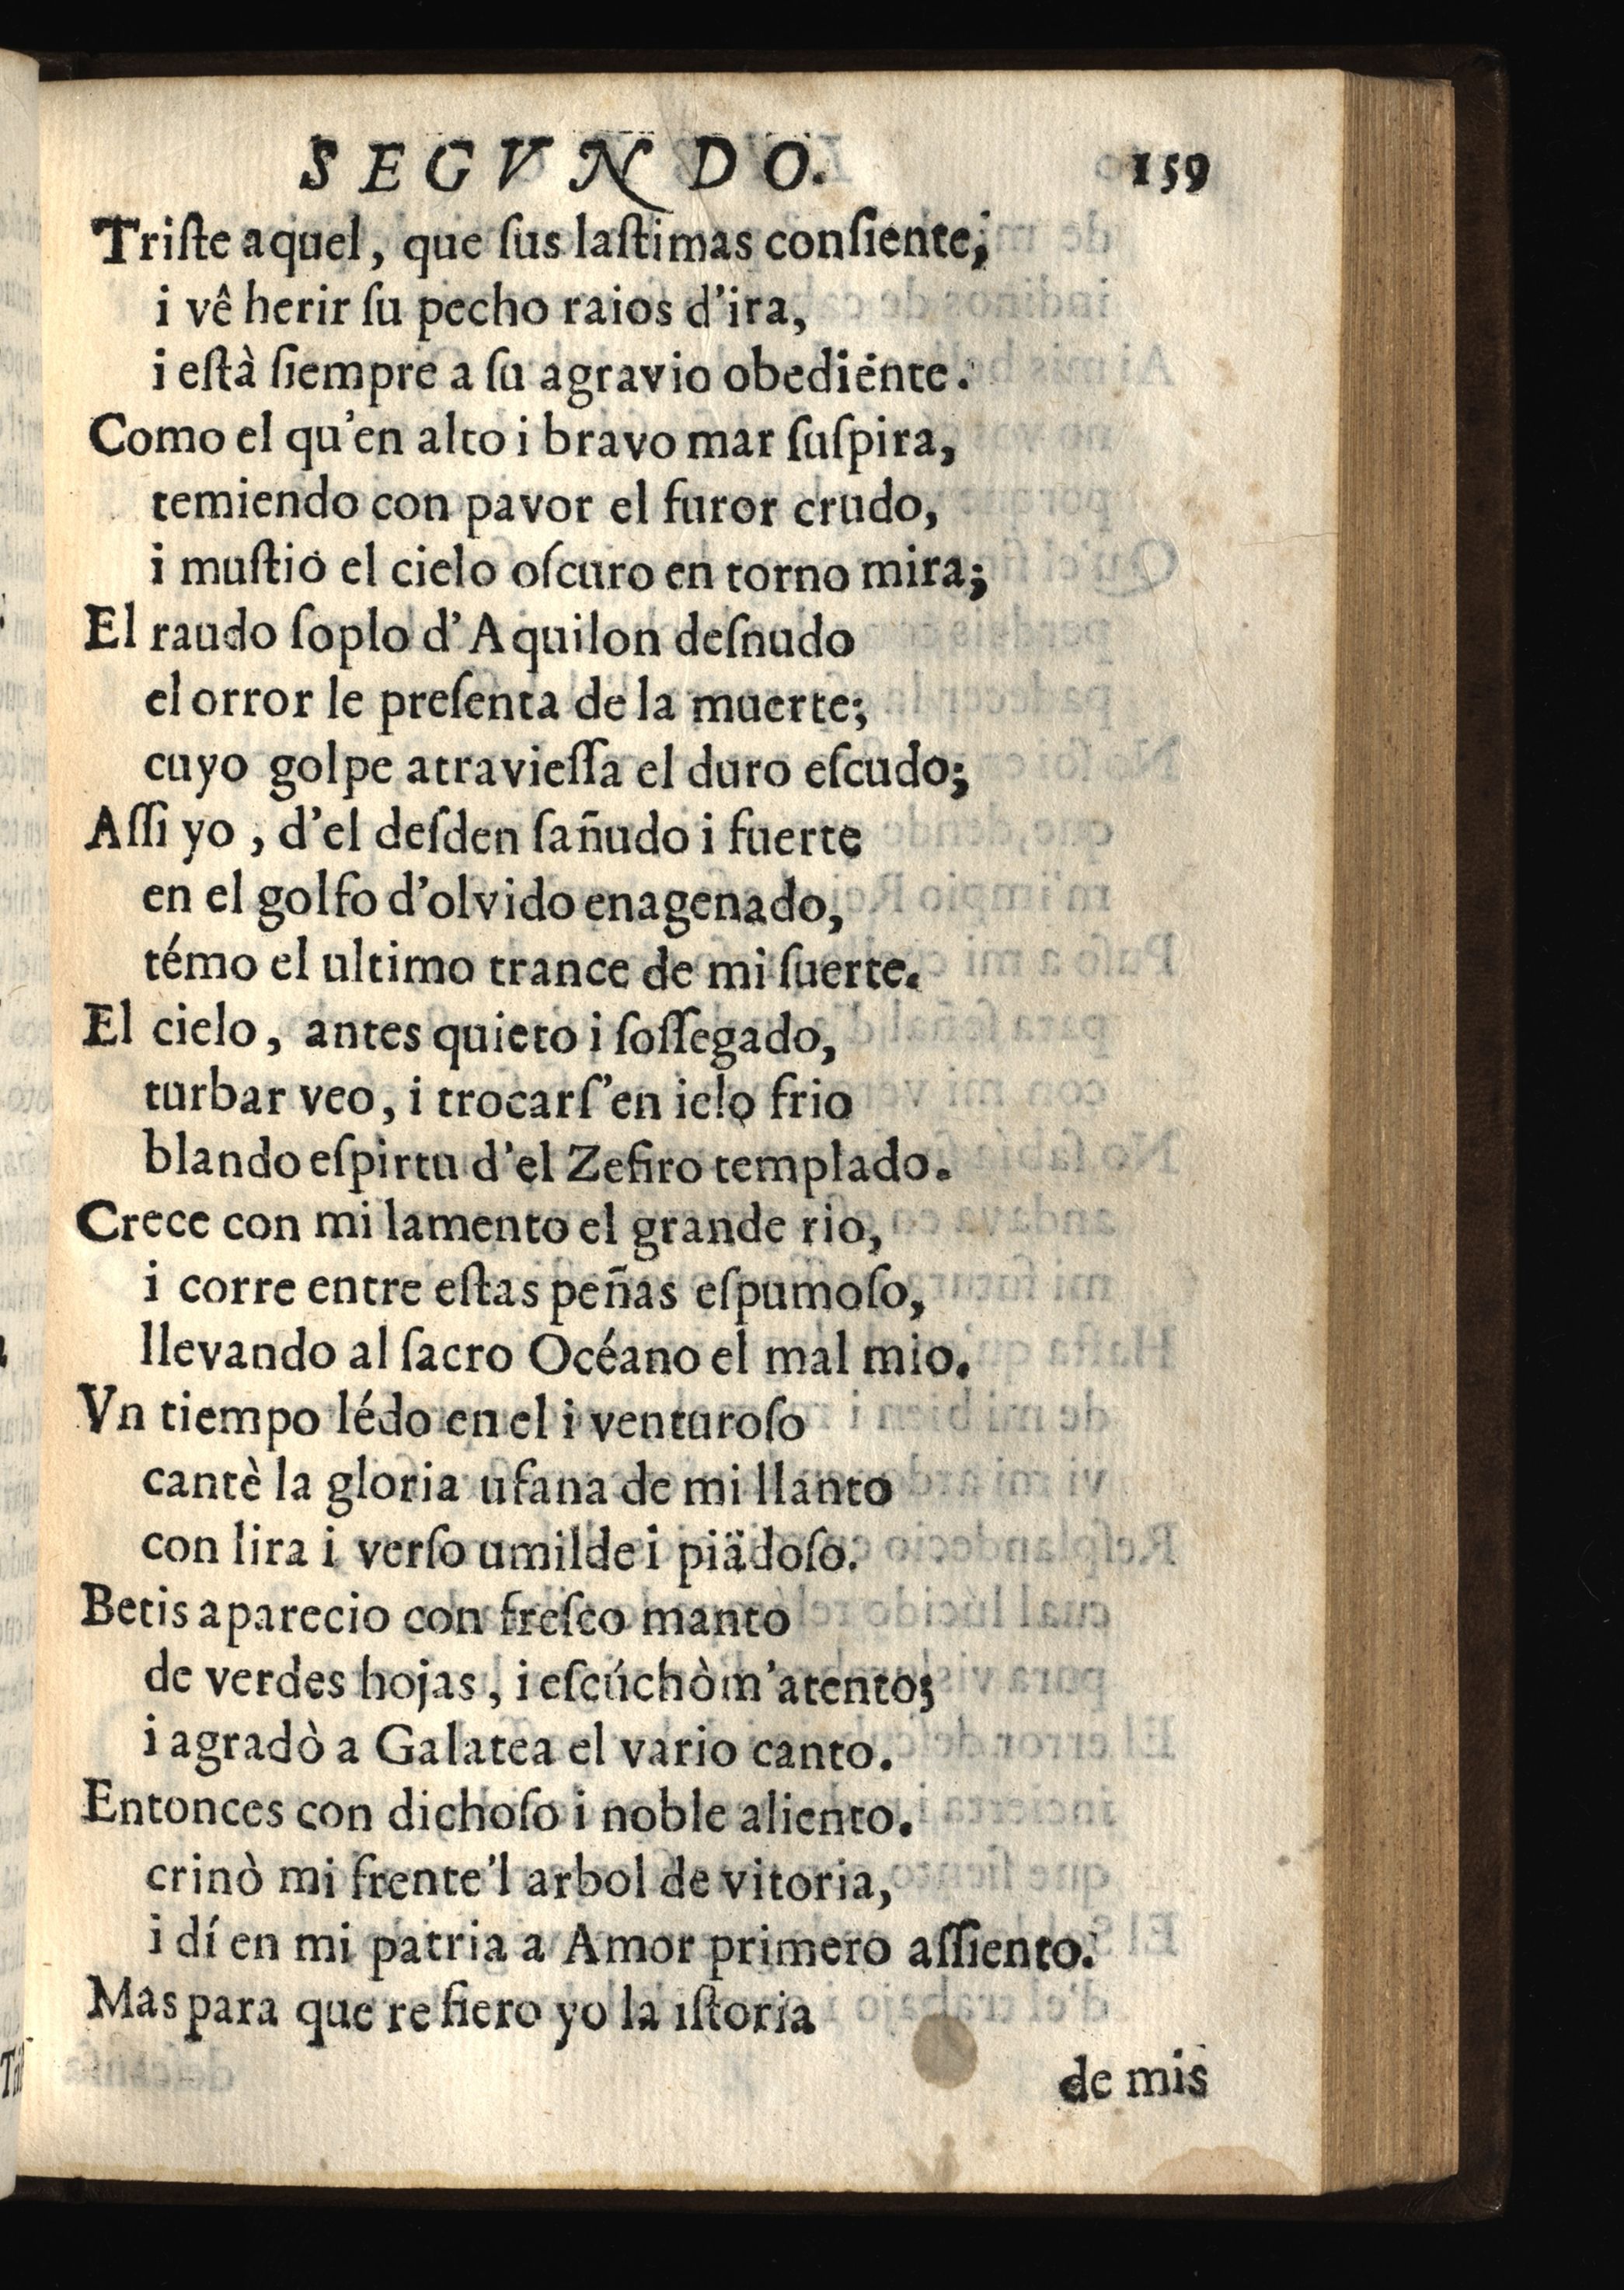 SEGVNDO. 159
Triſte aquel, que ſus laſtimas conſiente;
i vê herir ſu pecho raios d'ira,
i eſtà ſiempre a ſu agravio obediénte.
Como el qu'en alto i bravo mar ſuſpira,
temiendo con pavor el furor crudo,
i muſtio el cielo oſcuro en torno mira;
El raudo ſoplo d'Aquilon deſnudo
el orror le preſenta de la muerte;
cuyo golpe atravieſſa el duro eſcudo;
Aſſi yo, d'el deſden ſañudo i fuerte
en el golfo d'olvido enagenado,
témo el ultimo trance de mi ſuerte.
El cielo, antes quieto i ſoſſegado,
turbar veo, i trocarſ'en ielo frio
blando eſpirtu d'el Zefiro templado.
Crece con mi lamento el grande rio,
i corre entre eſtas peñas eſpumoſo,
llevando al ſacro Océano el mal mio.
Vn tiempo lédo en el i venturoſo
cantè la gloria ufana de mi llanto
con lira i verſo umilde i piädoſo.
Betis aparecio con freſco manto
de verdes hojas, i eſcúchòm'atento;
i agradò a Galatea el vario canto.
Entonces con dichoſo i noble aliento.
crinò mi frente'l arbol de vitoria,
i dí en mi patria a Amor primero aſſiento.
Mas para que refiero yo la iſtoria
de mis